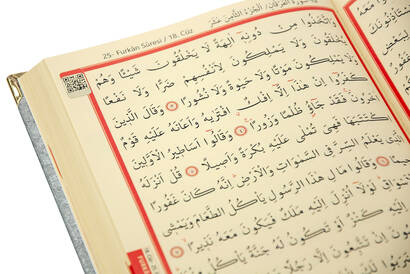 25- Furkân Sûresi / 18. Cüz
وَاتَّخَذُوا مِنْ دُونِهٖٓ اٰلِهَةً لَا يَخْلُقُونَ شَيْـًٔا وَهُمْ
يُخْلَقُونَ وَلَا يَمْلِكُونَ لِاَنْفُسِهِمْ ضَرًّا وَلَا نَفْعًا
وَلَا يَمْلِكُونَ مَوْتًا وَلَا حَيٰوةً وَلَا نُشُورًا ﴿٣﴾ وَقَالَ الَّذٖينَ
كَفَرُٓوا اِنْ هٰذَٓا اِلَّٓا اِفْكٌ افْتَرٰيهُ وَاَعَانَهُ عَلَيْهِ قَوْمٌ
اٰخَرُونَ فَقَدْ جَٓاؤُ ظُلْمًا وَزُورًا ﴿٤﴾ وَقَالُٓوا اَسَاطٖيرُ الْاَوَّلٖينَ
اكْتَتَبَهَا فَهِيَ تُمْلٰى عَلَيْهِ بُكْرَةً وَاَصٖيلًا ﴿٥﴾ قُلْ اَنْزَلَهُ
الَّذٖي يَعْلَمُ السِّرَّ فِي السَّمٰوَاتِ وَالْاَرْضِ اِنَّهُ كَانَ غَفُورًا
وَقَالُوا مَالِ هٰذَا الرَّسُولِ يَأْكُلُ الطَّعَامَ وَيَمْشٖي
الْاَسْوَاقِ لَوْلَٓا اُنْزِلَ اِلَيْهِ مَلَكٌ فَيَكُونَ مَعَهُ نَذٖيرًا ﴿٧﴾
اِلَيْهِ كَنْزٌ اَوْ تَكُونُ لَهُ جَنَّةٌ يَأْكُلُ
اِنْ تَتَّبِعُونَ اِلَّا